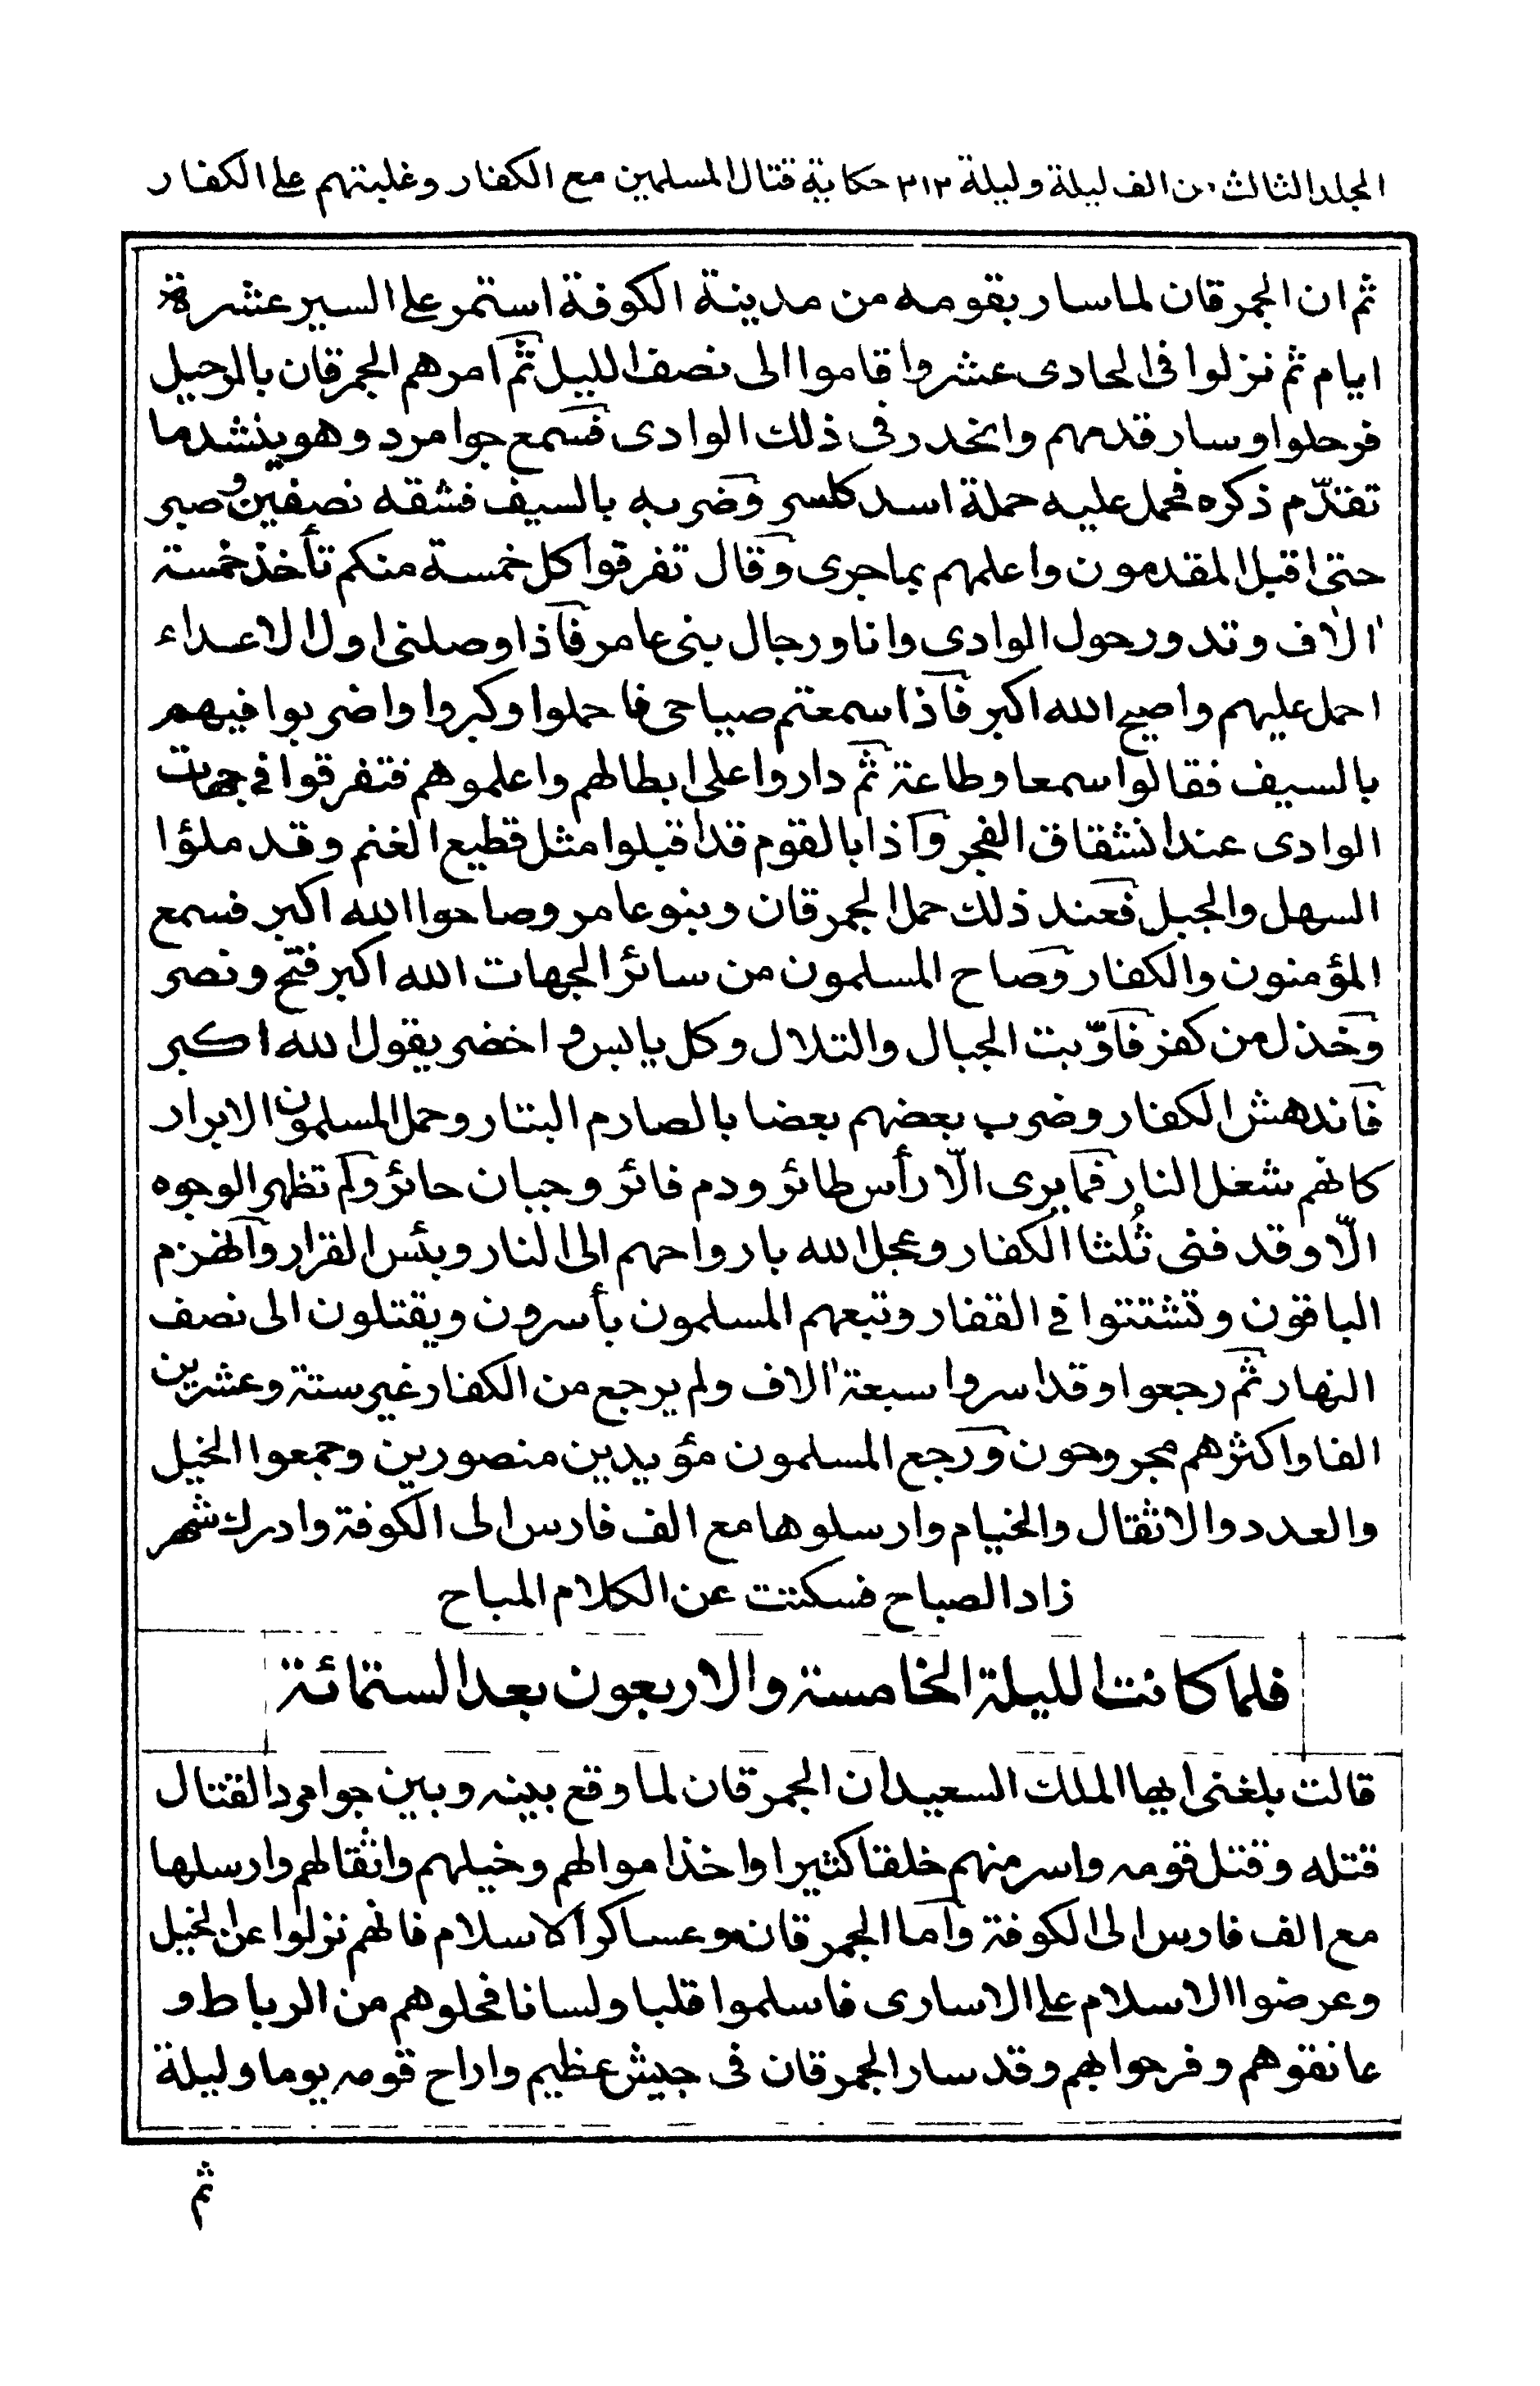 المجلد الثالث من الف ليلة وليلة ٣١٣ حكاية قتال المسلمين مع الكفار وغلبتهم على الكفار
ثم ان الجمرقان لما سار بقومه من مدينة الكوفة استمر على السير عشرة
ايام ثم نزلوا فى الحادى عشر واقاموا الى نصف الليل ثم امرهم الجمرقان بالرحيل
فرحلوا وسار قدمهم وانحدر فى ذلك الوادى فسمع جوامرد وهو ينشد ما
تقدّم ذكره فحمل عليه حملة اسد كاسر وضربه بالسيف فشقه نصفين وصبر
حتى اقبل المقدمون واعلمهم بما جرى وقال تفرقوا كل خمسة منكم تأخذ خمسة
الاف وتدور حول الوادى وانا ورجال بنى عامر فآذا وصلنى اول الاعداء
احمل عليهم واصيح الله اكبر فآذا سمعتم صياحى فاحملوا وكبروا واضربوا فيهم
بالسيف فقالوا سمعا وطاعة ثم داروا على ابطالهم واعلموهم فتفرقوا فى جهات
الوادى عند انشقاق الفجر وآذا بالقوم قد اقبلوا مثل قطيع الغنم وقد ملؤا
السهل والجبل فعند ذلك حمل الجمرقان وبنو عامر وصاحوا الله اكبر فسمع
المؤمنون والكفار وصاح المسلمون من سائر الجهات الله اكبر فتح ونصر
وخذل من كفر فآوّبت الجبال والتلال وكل يابس واخضر يقول الله اكبر
فآندهش الكفار وضرب بعضهم بعضا بالصارم البتار وحمل المسلمون الابرار
كانهم شغل النار فما يرى الّا رأس طائر ودم فائر وجبان حائر ولم تظهر الوجوه
الّا وقد فنى ثُلثا الكفار وعجل الله بارواحهم الى النار وبئس القرار وآنهزم
الباقون وتشتتوا فى القفار وتبعهم المسلمون يأسرون ويقتلون الى نصف
النهار ثم رجعوا وقد اسروا سبعة الاف ولم يرجع من الكفار غير ستة وعشرين
الفا واكثرهم مجروحون ورجع المسلمون مؤيدين منصورين وجمعوا الخيل
والعدد والاثقال والخيام وارسلوها مع الف فارس الى الكوفة وادرك شهر
زاد الصباح فسكتت عن الكلام المباح
فلما كانت الليلة الخامسة والاربعون بعد الستمائة
قالت بلغنى ايها الملك السعيد ان الجمرقان لما وقع بينه وبين جوامرد القتال
قتله وقتل قومه واسر منهم خلقا كثيرا واخذ اموالهم وخيلهم واثقالهم وارسلها
مع الف فارس الى الكوفة وآما الجمرقان وعساكر الاسلام فانهم نزلوا عن الخيل
وعرضوا الاسلام على الاسارى فاسلموا قلبا ولسانا فحلوهم من الرباط و
عانقوهم وفرحوا بهم وقد سار الجمرقان فى جيش عظيم واراح قومه يوما وليلة
ثم